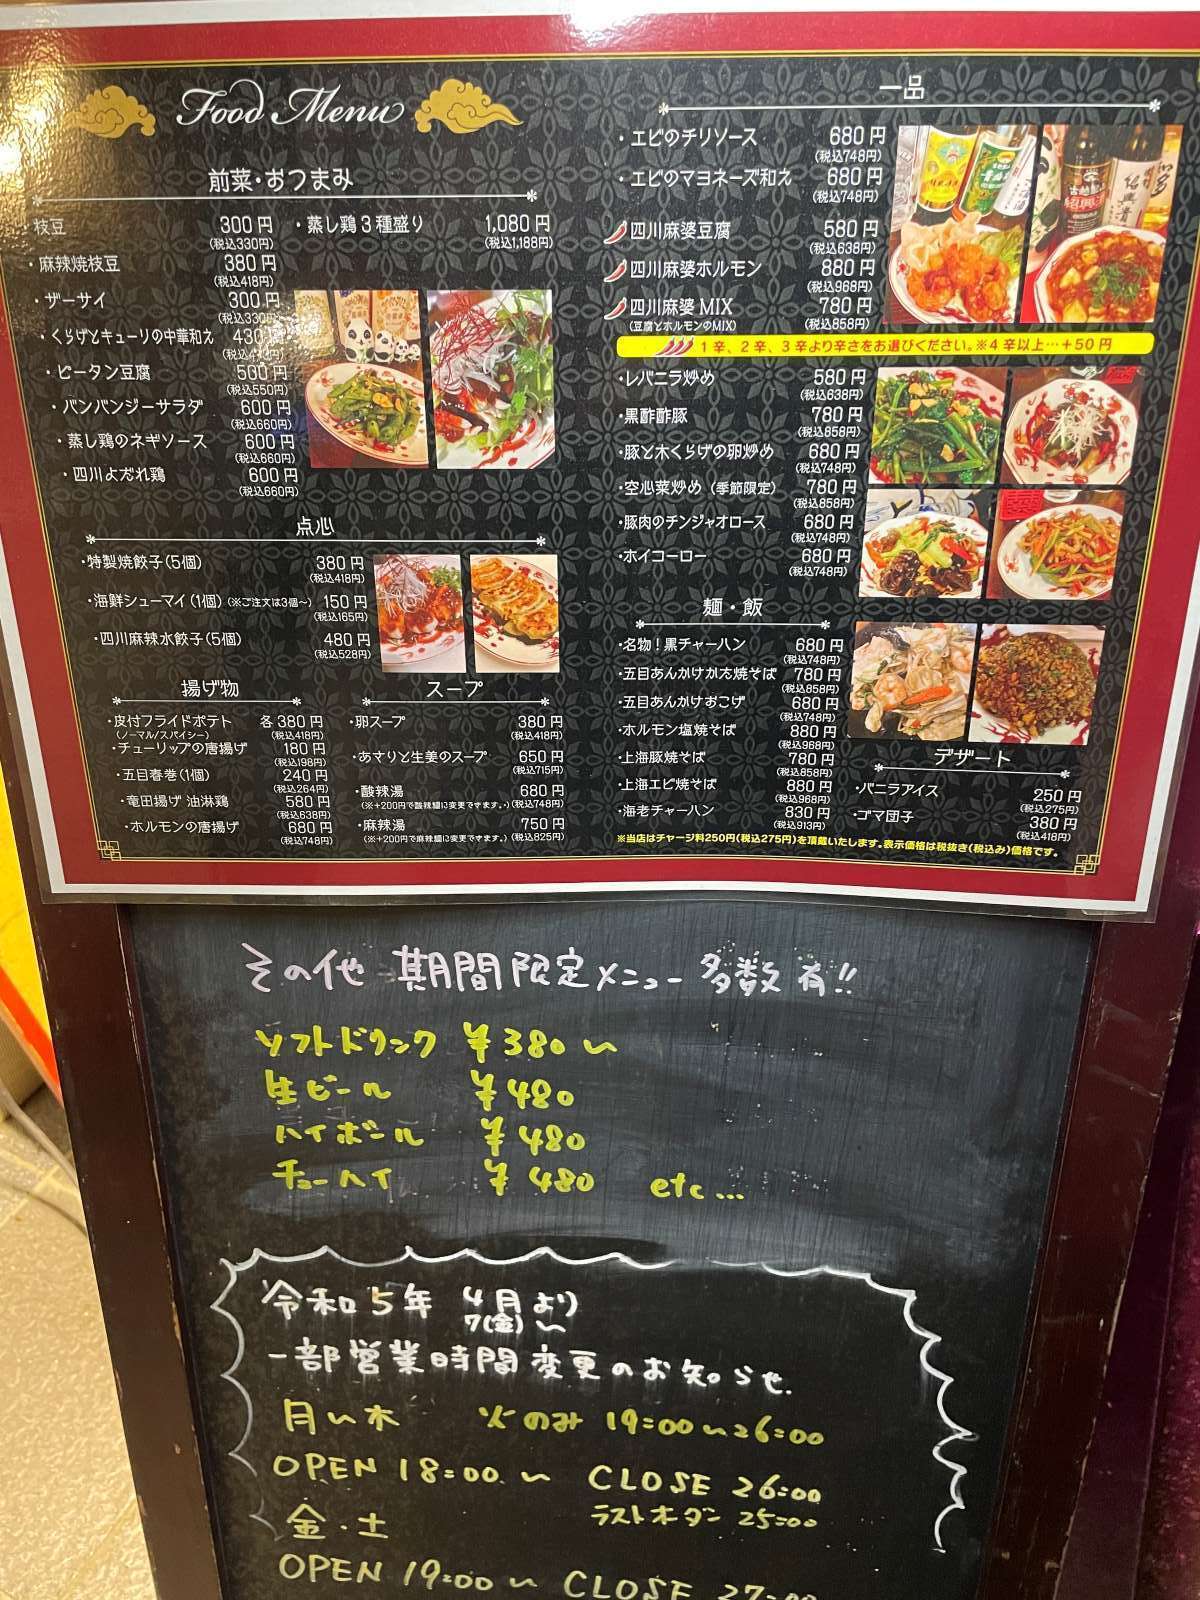 Food Menu
前菜・おつまみ
・枝豆 300円
(税込330円)
・麻辣焼枝豆 380円
(税込418円)
・ザーサイ 300円
(税込330円)
・くらげとキューリの中華和え 430円
・ピータン豆腐 500円
(税込550円)
・バンバンジーサラダ 600円
(税込660円)
・蒸し鶏のネギソース 600円
(税込660円)
・四川よだれ鶏 600円
(税込660円)
・蒸し鶏3種盛り 1,080円
(税込1,188円)
点心
・特製焼餃子(5個) 380円
(税込418円)
・海鮮シューマイ(1個)(※ご注文は3個〜) 150円
(税込165円)
・四川麻辣水餃子(5個) 480円
(税込528円)
揚げ物
・皮付フライドポテト 各380円
(ノーマル/スパイシー) (税込418円)
・チューリップの唐揚げ 180円
(税込198円)
・五目春巻(1個) 240円
(税込264円)
・竜田揚げ 油淋鶏 580円
(税込638円)
・ホルモンの唐揚げ 680円
(税込748円)
スープ
・卵スープ 380円
(税込418円)
・あさりと生姜のスープ 650円
(税込715円)
・酸辣湯 680円
(※+200円で酸辣麺に変更できます。) (税込748円)
・麻辣湯 750円
(※+200円で麻辣麺に変更できます。) (税込825円)
一品
・エビのチリソース 680円
(税込748円)
・エビのマヨネーズ和え 680円
(税込748円)
四川麻婆豆腐 580円
(税込638円)
四川麻婆ホルモン 880円
(税込968円)
四川麻婆MIX 780円
(豆腐とホルモンのMIX) (税込858円)
1辛、2辛、3辛より辛さをお選びください。※4辛以上…+50円
・レバニラ炒め 580円
(税込638円)
・黒酢酢豚 780円
(税込858円)
・豚と木くらげの卵炒め 680円
(税込748円)
・空心菜炒め(季節限定) 780円
(税込858円)
・豚肉のチンジャオロース 680円
(税込748円)
・ホイコーロー 680円
(税込748円)
麺・飯
・名物!黒チャーハン 680円
(税込748円)
・五目あんかけかた焼そば 780円
(税込858円)
・五目あんかけおこげ 680円
(税込748円)
・ホルモン塩焼そば 880円
(税込968円)
・上海豚焼そば 780円
(税込858円)
・上海エビ焼そば 880円
(税込968円)
・海老チャーハン 830円
(税込913円)
デザート
・バニラアイス 250円
(税込275円)
・ゴマ団子 380円
(税込418円)
※当店はチャージ料250円(税込275円)を頂戴いたします。表示価格は税抜き(税込み)価格です。
その他 期間限定メニュー 多数有!!
ソフトドリンク ¥380〜
生ビール ¥480
ハイボール ¥480
チューハイ ¥480 etc...
令和5年 4月より
7(金)〜
一部営業時間変更のお知らせ.
月〜木 火のみ 19:00〜26:00
OPEN 18:00〜 CLOSE 26:00
ラストオーダー 25:00
金・土
OPEN 19:00〜 CLOSE 27:00